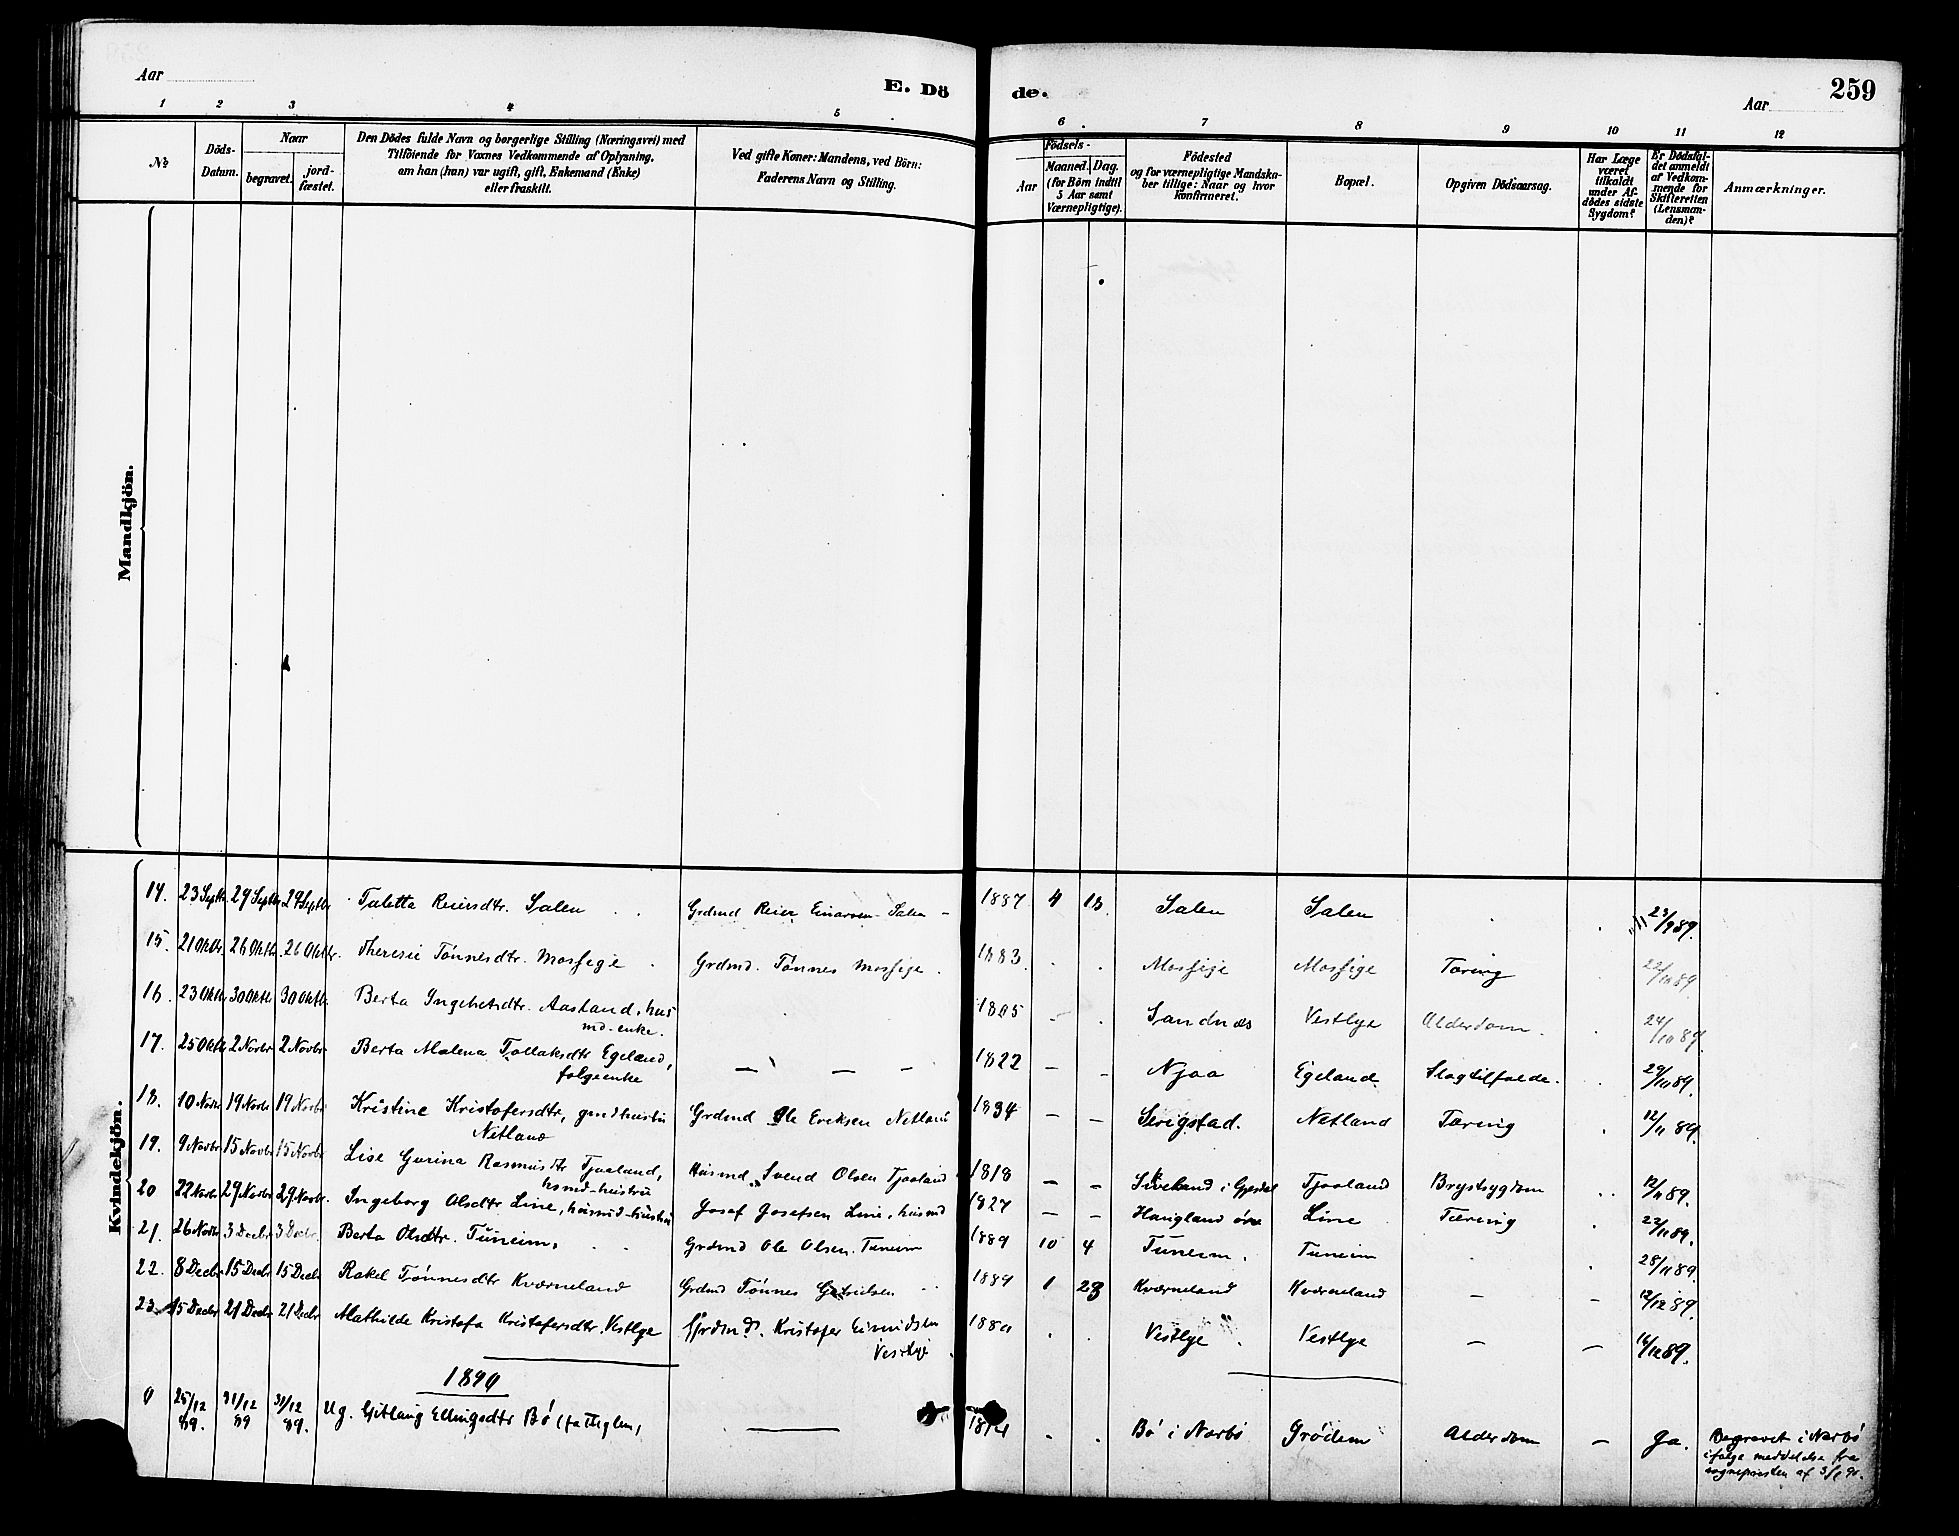 Aar
E. Dö
de.
Aar
259
1 2 3 4 5 6 7 8 9 10 11 12
№
Döds-Datum.
Naar
begravet.
jord-fæstet.
Den Dödes fulde Navn og borgerlige Stilling (Næringsvei) med
Tilföiende for Voxnes Vedkommende af Oplysning,
om han (hun) var ugift, gift, Enkemand (Enke)
eller fraskilt.
Ved gifte Koner: Mandens, ved Börn:
Faderens Navn og Stilling.
Födsels-
Aar
Maaned. Dag.
(for Börn indtil
5 Aar samt
Værnepligtige).
Födested
og for værnepligtige Mandska-
ber tillige: Naar og hvor
konfirmeret.
Bopæl.
Opgiven Dödsaarsag.
Har Læge
været
tilkaldt
under Af-
dödes sidste
Sygdom?
Er Dödsfal-
det anmeldt
af Vedkom-
mende for
Skifteretten
(Lensman-
den)?
Anmærkninger.
Mandkjön.
Kvindekjön.
14. 23 Septbr 29 Septbr 29 Septbr Taletta Reiersdtr. Salen Grdmd Reier Einarsen Salen 1887 4 13. Salen Salen 23/9 89.
15. 21 Oktbr 26 Oktbr 26 Oktbr. Theresie Tønnesdtr. Mossige Grdmd. Tønnes Mossige. 1883 Mossige Mossige Tæring 22/10 89.
16. 23 Oktbr 30 Oktbr 30 Oktbr. Berta Ingebretsdtr. Aasland, hus 1805 Sandnæs Vestlye Alderdom. 24/10 89.
md.-enke.
17. 25 Oktbr 2 Novbr 2 Novbr Berta Malena Tollaksdtr Egeland, 1822 Njaa Egeland Slagtilfælde. 29/10 89.
folgeenke
18. 10 Novbr 19 Novbr 19 Novbr Kristine Kristofersdtr, Grdmd Ole Eriksen Netland 1834 Serigstad. Netland Tæring 12/11 89.
Netland
19. 9 Novbr 15 Novbr 15 Novbr Lise Gurina Rasmusdtr Tjaaland, Husmd. Svend Olsen Tjaaland 1818 i Gjesdal Tjaaland Brystsygdom 12/11 89.
husmd-hustru
20 22 Novbr 29 Novbr 29 Novbr. Ingeborg Olsdtr Line, husmd-hustru Josef Josefsen Line, husmd 1827 Haugland Line Tæring 22/11 89.
21. 26 Novbr 3 Decbr 3 Decbr. Berta Olsdtr. Tuneim, Grdmd Ole Olsen Tuneim 1889 10 4 Tuneim. Tuneim 28/11 89.
22. 8 Decbr 15 Decbr 15 Decbr Rakel Tønnesdtr Kværneland Grdmd Tønnes Gabrielsen 1889 1 23 Kværneland Kværneland 12/12 89.
23 15 Decbr 21 Decbr 21 Decbr Mathilde Kristofa Kristofersdtr. Vestlye Grdmd. Kristofer Vestlye Vestlye 16/12 89.
Vestlye
1890
25/12 89. 31/12 89 31/12 89. Ug. Ellingsdtr Bø Bø i Nærbø Grødem Alderdom ja. Begravet i Nærbø
ifølge meddelelse fra
sognepresten af 3/1 90.